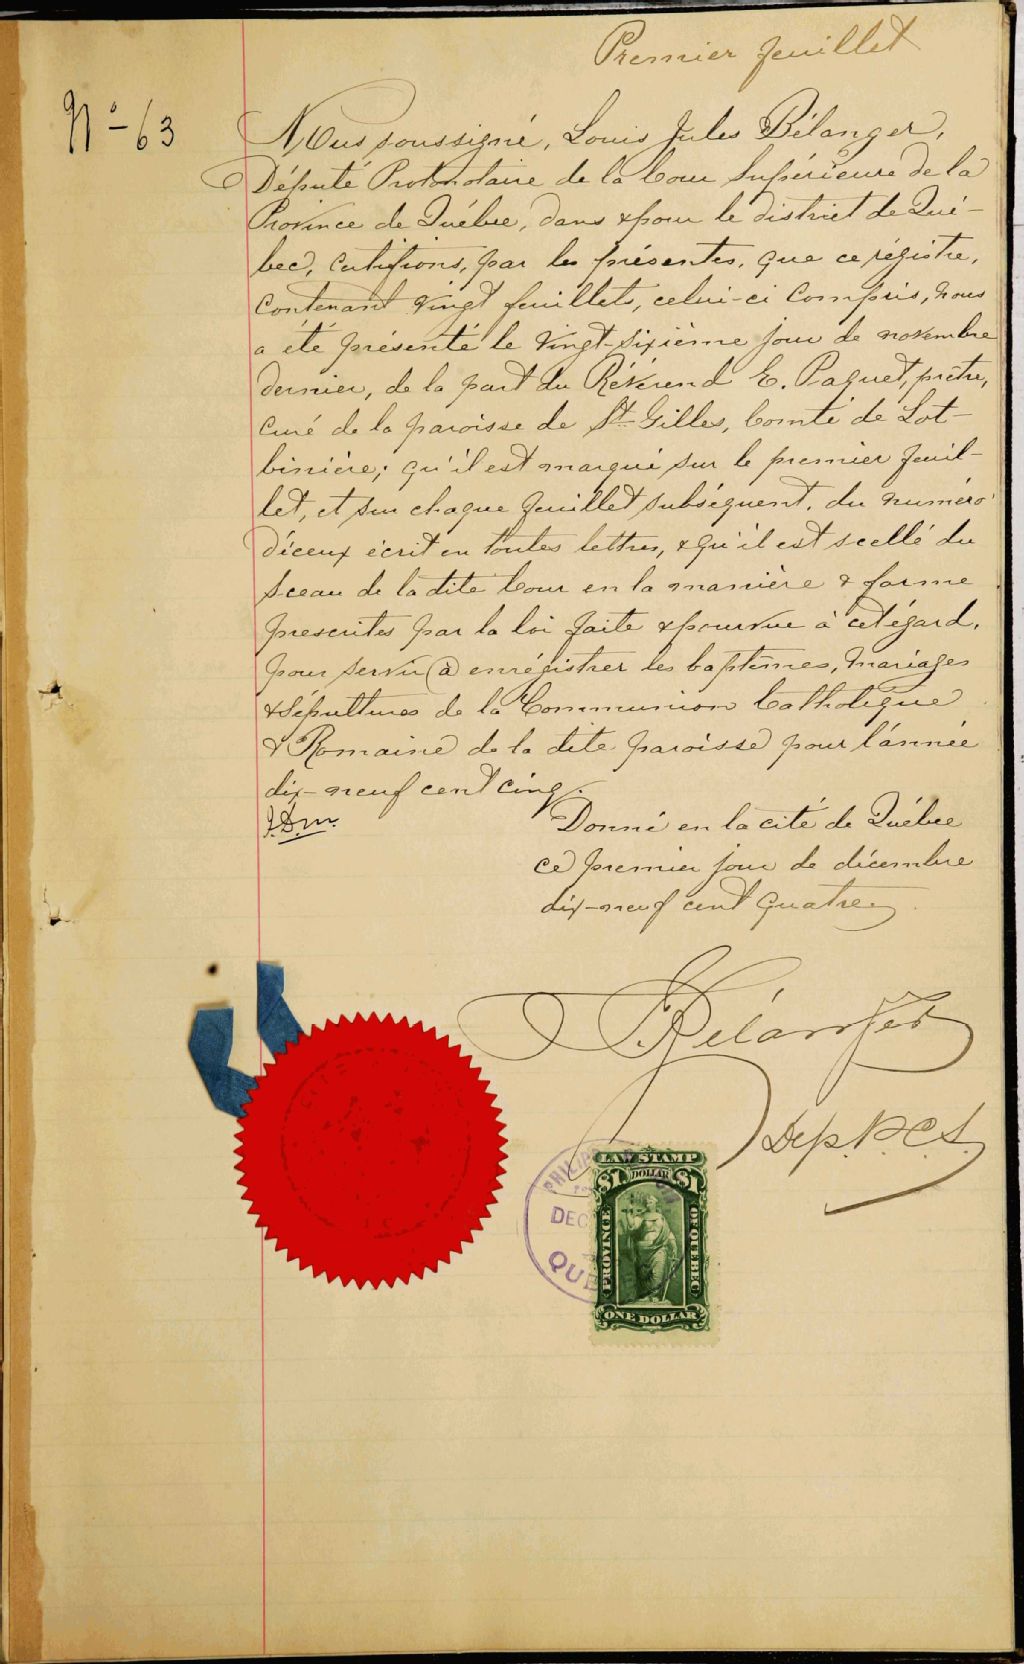 Premier feuillet
No- 63
Nous soussigné, Louis Jules Bélanger,
Député Protonotaire de la Cour Supérieure de la
Province de Québec, dans & pour le district de Qué-
bec, certifions, par les présentes, que ce régistre,
contenant vingt feuillets, celui-ci compris, nous
a été présenté le vingt-sixième jour de novembre
dernier, de la part du Révérend E. Paquet, prêtre,
curé de la paroisse de St-Gilles, Comté de Lot-
binière; qu'il est marqué sur le premier feuil-
let, et sur chaque feuillet subséquent, du numéro
d'iceux écrit en toutes lettres, & qu'il est scellé du
sceau de la dite Cour en la manière & forme
prescrites par la loi faite & pourvue à cet égard,
pour servir (à) enrégistrer les baptêmes, mariages
& sépultures de la Communion Catholique
& Romaine de la dite paroisse pour l'année
dix-neuf cent cinq.
Donné en la cité de Québec
ce premier jour de décembre
dix-neuf cent quatre
Bélanger
Dep. P.C.S.
LAW STAMP
$1 DOLLAR $1
PROVINCE OF QUEBEC
ONE DOLLAR
DEC
QUE